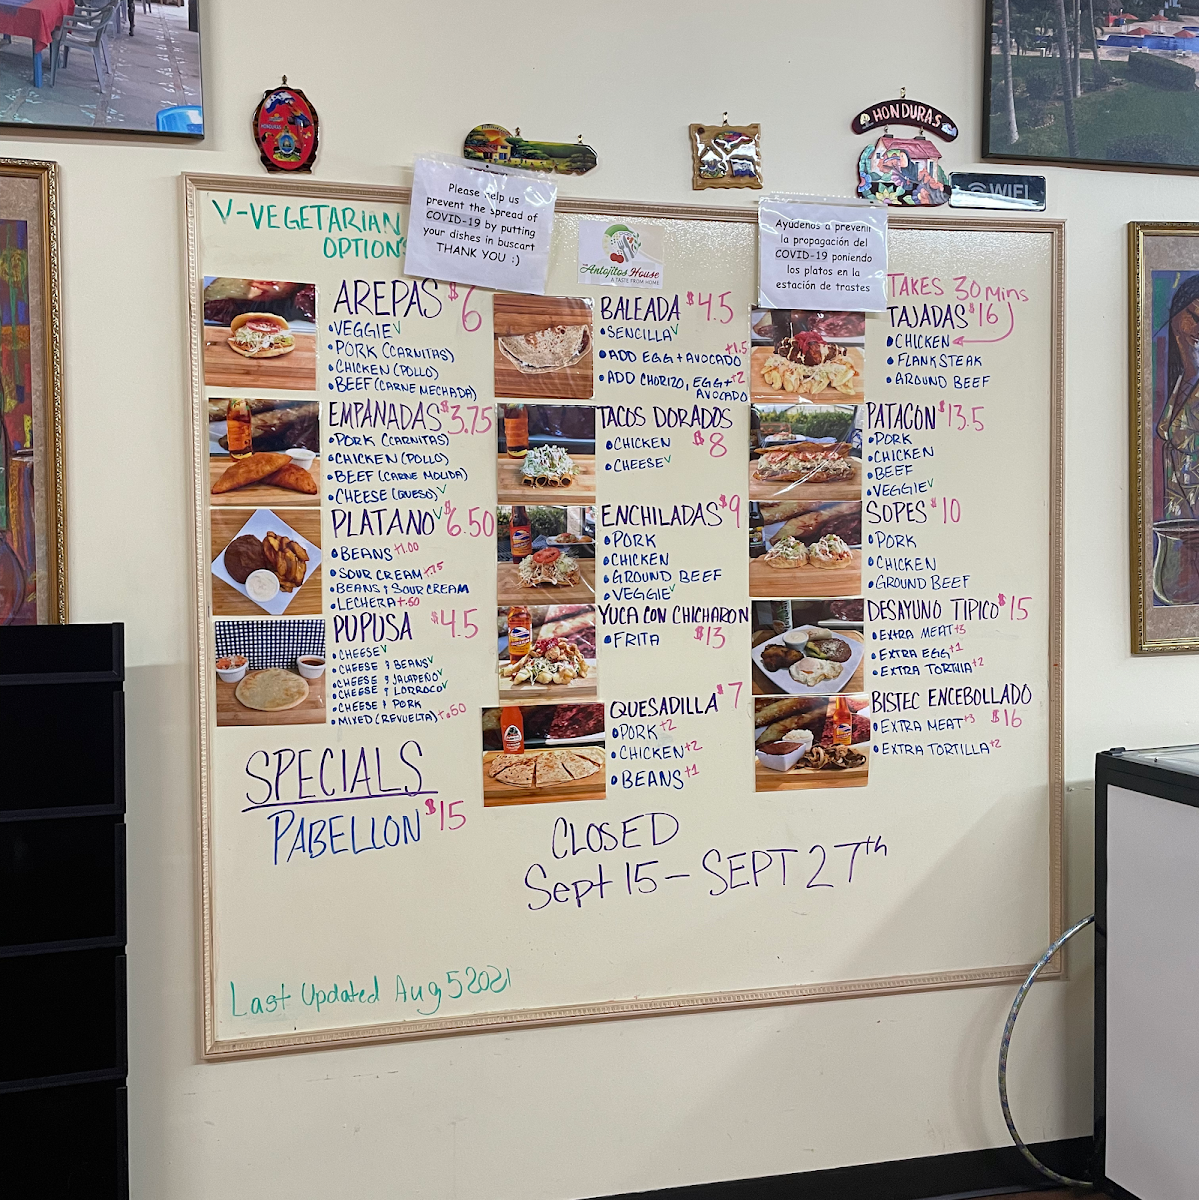 HONDURAS
HONDURAS
WIFI
Please help us
prevent the spread of
COVID-19 by putting
your dishes in buscart
THANK YOU :)
Antojitos House
A TASTE FROM HOME
Ayúdenos a prevenir
la propagación del
COVID-19 poniendo
los platos en la
estación de trastes
V-VEGETARIAN
OPTIONS
AREPAS $6
•VEGGIE V
•PORK (CARNITAS)
•CHICKEN (POLLO)
•BEEF (CARNE MECHADA)
EMPANADAS $3.75
•PORK (CARNITAS)
•CHICKEN (POLLO)
•BEEF (CARNE MOLIDA)
•CHEESE (QUESO) V
PLATANO V $6.50
•BEANS +1.00
•SOUR CREAM +.75
•BEANS & SOUR CREAM
•LECHERA +.50
PUPUSA $4.5
•CHEESE V
•CHEESE & BEANS V
•CHEESE & JALAPEÑO V
•CHEESE & LORROCO V
•CHEESE & PORK
•MIXED (REVUELTA) +.50
SPECIALS
PABELLON $15
BALEADA $4.5
•SENCILLA V
•ADD EGG + AVOCADO +1.5
•ADD CHORIZO, EGG + +2
AVOCADO
TACOS DORADOS
•CHICKEN $8
•CHEESE V
ENCHILADAS $9
•PORK
•CHICKEN
•GROUND BEEF
•VEGGIE V
YUCA CON CHICHARON
•FRITA $13
QUESADILLA $7
•PORK +2
•CHICKEN +2
•BEANS +1
TAKES 30 Mins
TAJADAS $16
•CHICKEN
•FLANKSTEAK
•AROUND BEEF
PATACON $13.5
•PORK
•CHICKEN
•BEEF
•VEGGIE V
SOPES $10
•PORK
•CHICKEN
•GROUND BEEF
DESAYUNO TIPICO $15
•EXTRA MEAT +3
•EXTRA EGG +1
•EXTRA TORTILLA +2
BISTEC ENCEBOLLADO
•EXTRA MEAT +3 $16
•EXTRA TORTILLA +2
CLOSED
Sept 15 – SEPT 27th
Last Updated Aug 5 2021